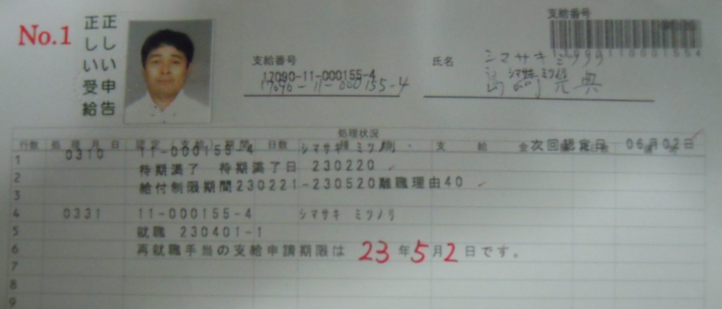 No.1
正しい申告
正しい受給
支給番号
支給番号
17090-11-000155-4
17090-11-000155-4
氏名
シマサキ ミツノリ
処理状況
行数 処理月日 認定(支給)期間 日数 種別 支給金額
次回認定日 06月02日
1 0310 11-000155-4 シマサキ ミツノリ
2 待期満了 待期満了日 230220
3 給付制限期間230221-230520離職理由40
4 0331 11-000155-4 シマサキ ミツノリ
5 就職 230401-1
6 再就職手当の支給申請期限は 23年5月2日です。
7
8
9